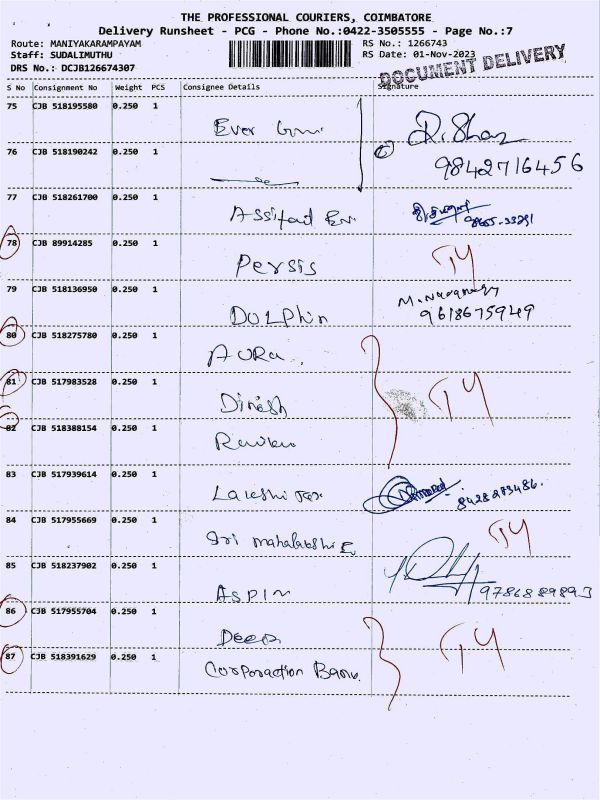 THE PROFESSIONAL COURIERS, COIMBATORE
Delivery Runsheet - PCG - Phone No.:0422-3505555 - Page No.:7
Route: MANIYAKARAMPAYAM
RS No.: 1266743
Staff: SUDALIMUTHU
RS Date: 01-Nov-2023
DRS No.: DCJB126674307
DOCUMENT DELIVERY
S No Consignment No Weight PCS Consignee Details Signature
75 CJB 518195580 0.250 1 Ever
9842716456
76 CJB 518190242 0.250 1
77 CJB 518261700 0.250 1
78 CJB 89914285 0.250 1 Persis
79 CJB 518136950 0.250 1 DOLPhin
9618675949
80 CJB 518275780 0.250 1 AURA
81 CJB 517983528 0.250 1 Dinesh
82 CJB 518388154 0.250 1
83 CJB 517939614 0.250 1
8428283486.
84 CJB 517955669 0.250 1 Sri
85 CJB 518237902 0.250 1 ASPIN
9786889893
86 CJB 517955704 0.250 1 Deep
87 CJB 518391629 0.250 1 Corporaction Bank